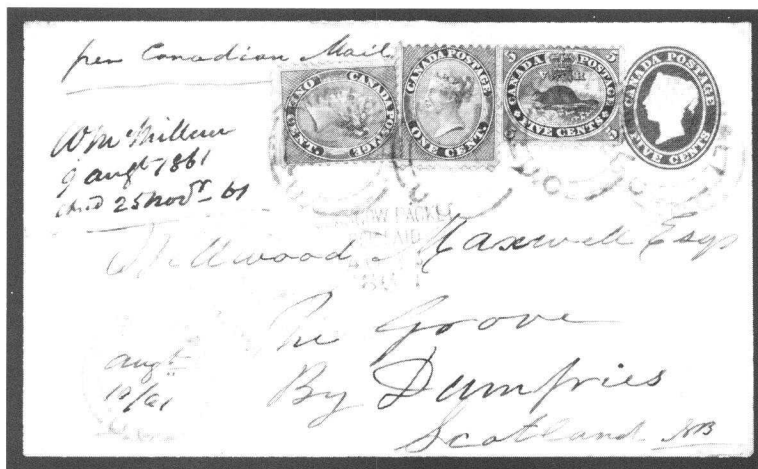 per Canadian Mail
CANADA POSTAGE
ONE CENT.
CANADA POSTAGE
ONE CENT.
5 CANADA POSTAGE 5
5 FIVE CENTS 5
CANADA POSTAGE
FIVE CENTS
Augt 1861
25 Novr - 61
PACKET
PAID
Wellwood Maxwell Esqr
The Grove
By Dumfries
Scotland NB
Augt
10/61